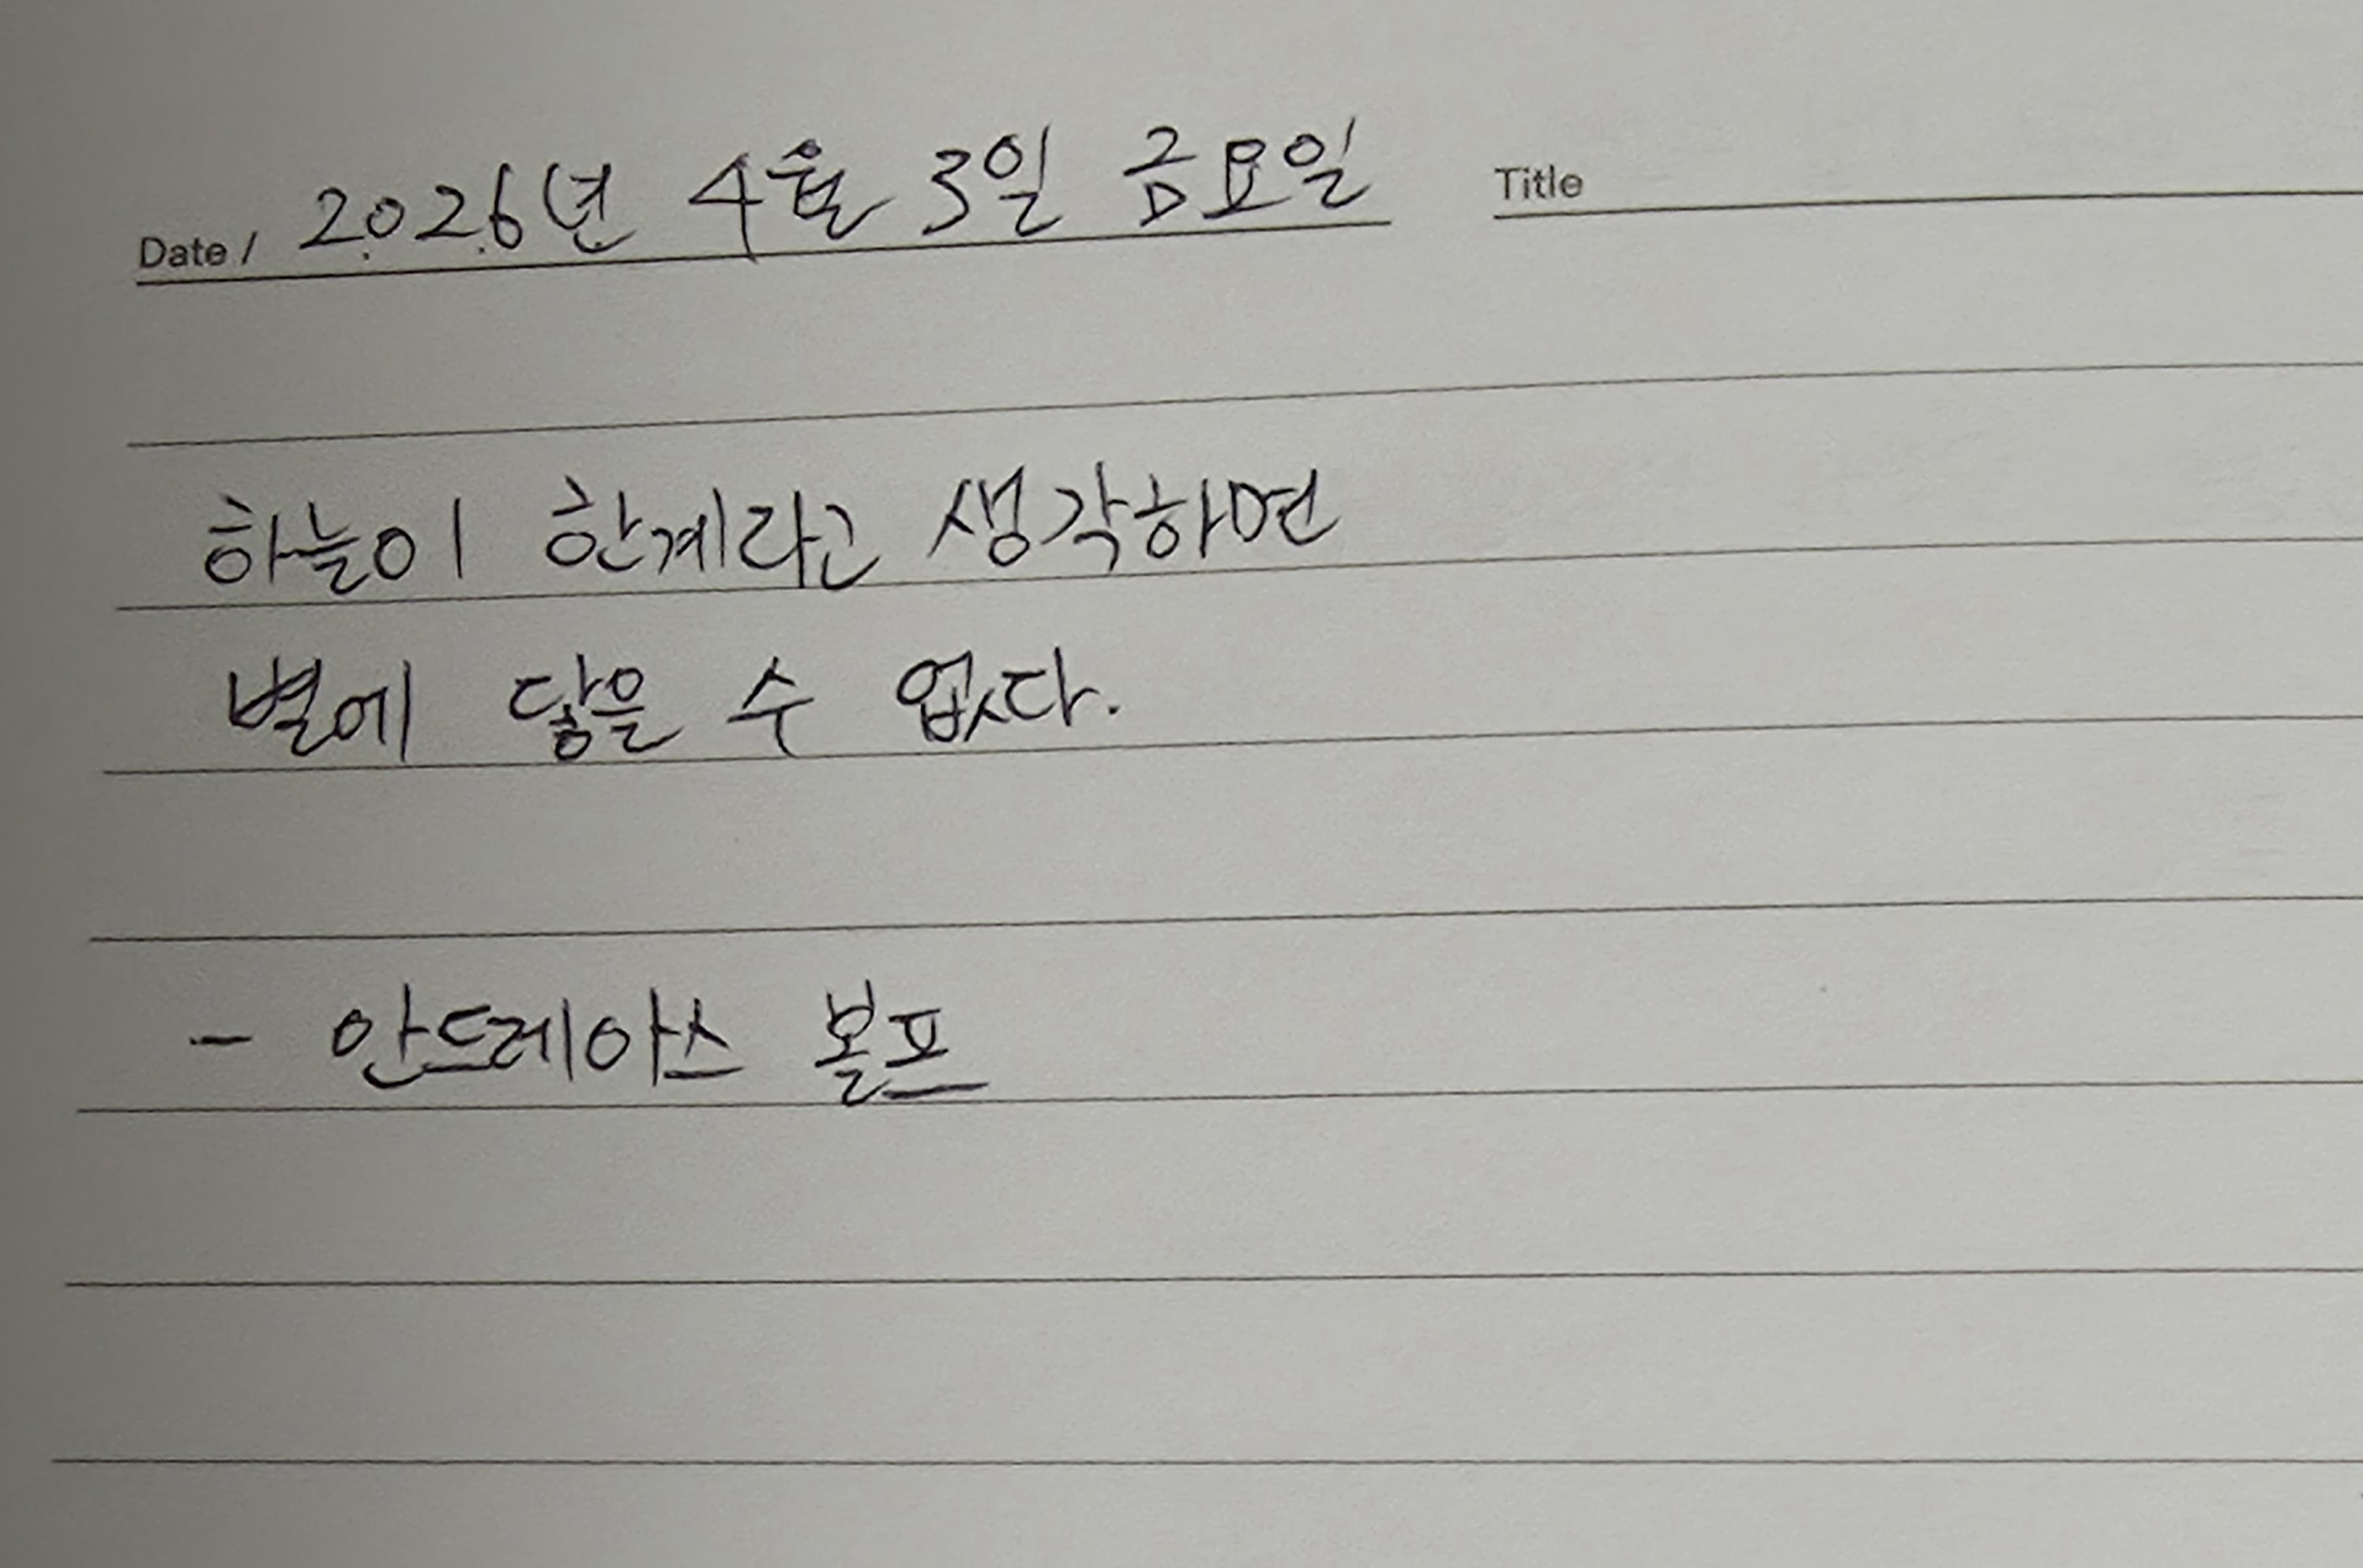 Date / 2026년 4월 3일 금요일 Title
하늘이 한계라고 생각하면
별에 닿을 수 없다.
- 안드레아스 볼프